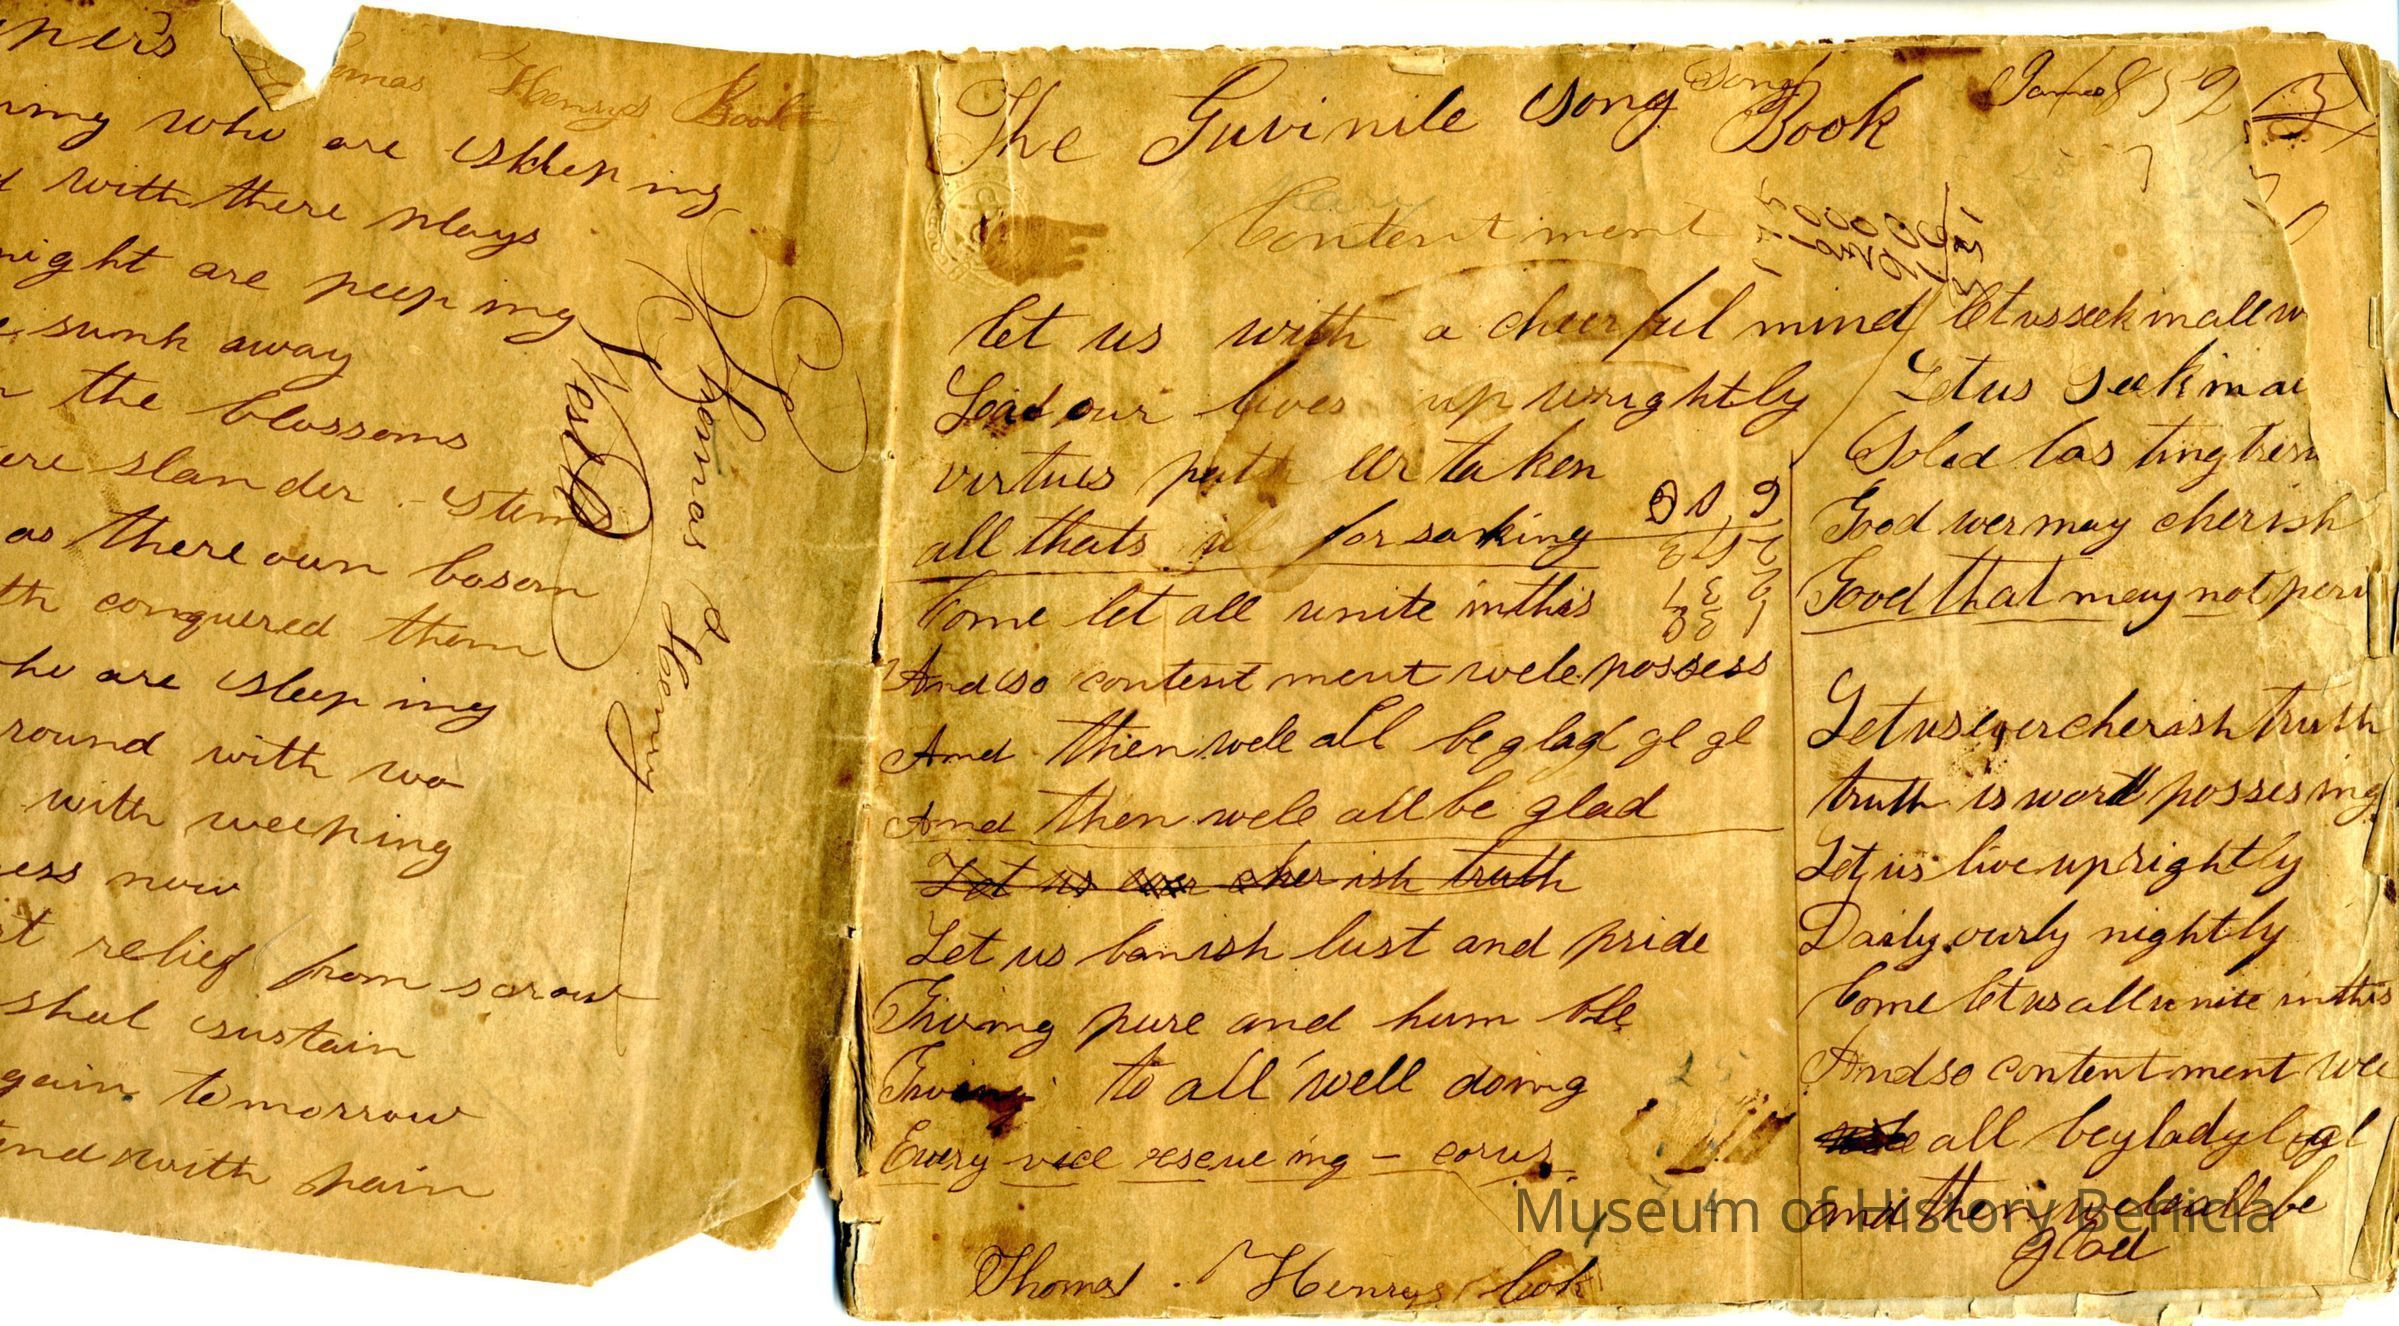 Thomas Henrys Book
ners
who are sleeping
with there plays
night are peeping
sunk away
the blossoms
slander stem
as there own bosom
conquered them
are sleeping
round with wo
with weeping
ess now
relief from sorow
shal sustain
gain tomorrow
with pain
Thomas Henry
The Guvinile song Book
Song
Contentment
let us with a cheerful mind
Lead our lives up wrightly
virtues path ever taken
all thats ill for saking
Come let all unite in this
And so content ment wele possess
And then wele all be glad gl gl
And then wele all be glad
Let us ever cher ish truth
Let us banish lust and pride
pure and hum ble
to all well doing
Every vice rescue ing - corus
Thomas Henrys bok
let us seek in all w
Let us seek in al
Solid las ting tres
Good wer may cherish
Good that may not peri
Let us ever cherish truth
truth is worth possesing
Let us live uprightly
Daily ourly nightly
Come let us all unite in this
And so content ment wee
all be glad gl gl
and then wele all be
glad
Museum of History Benicia